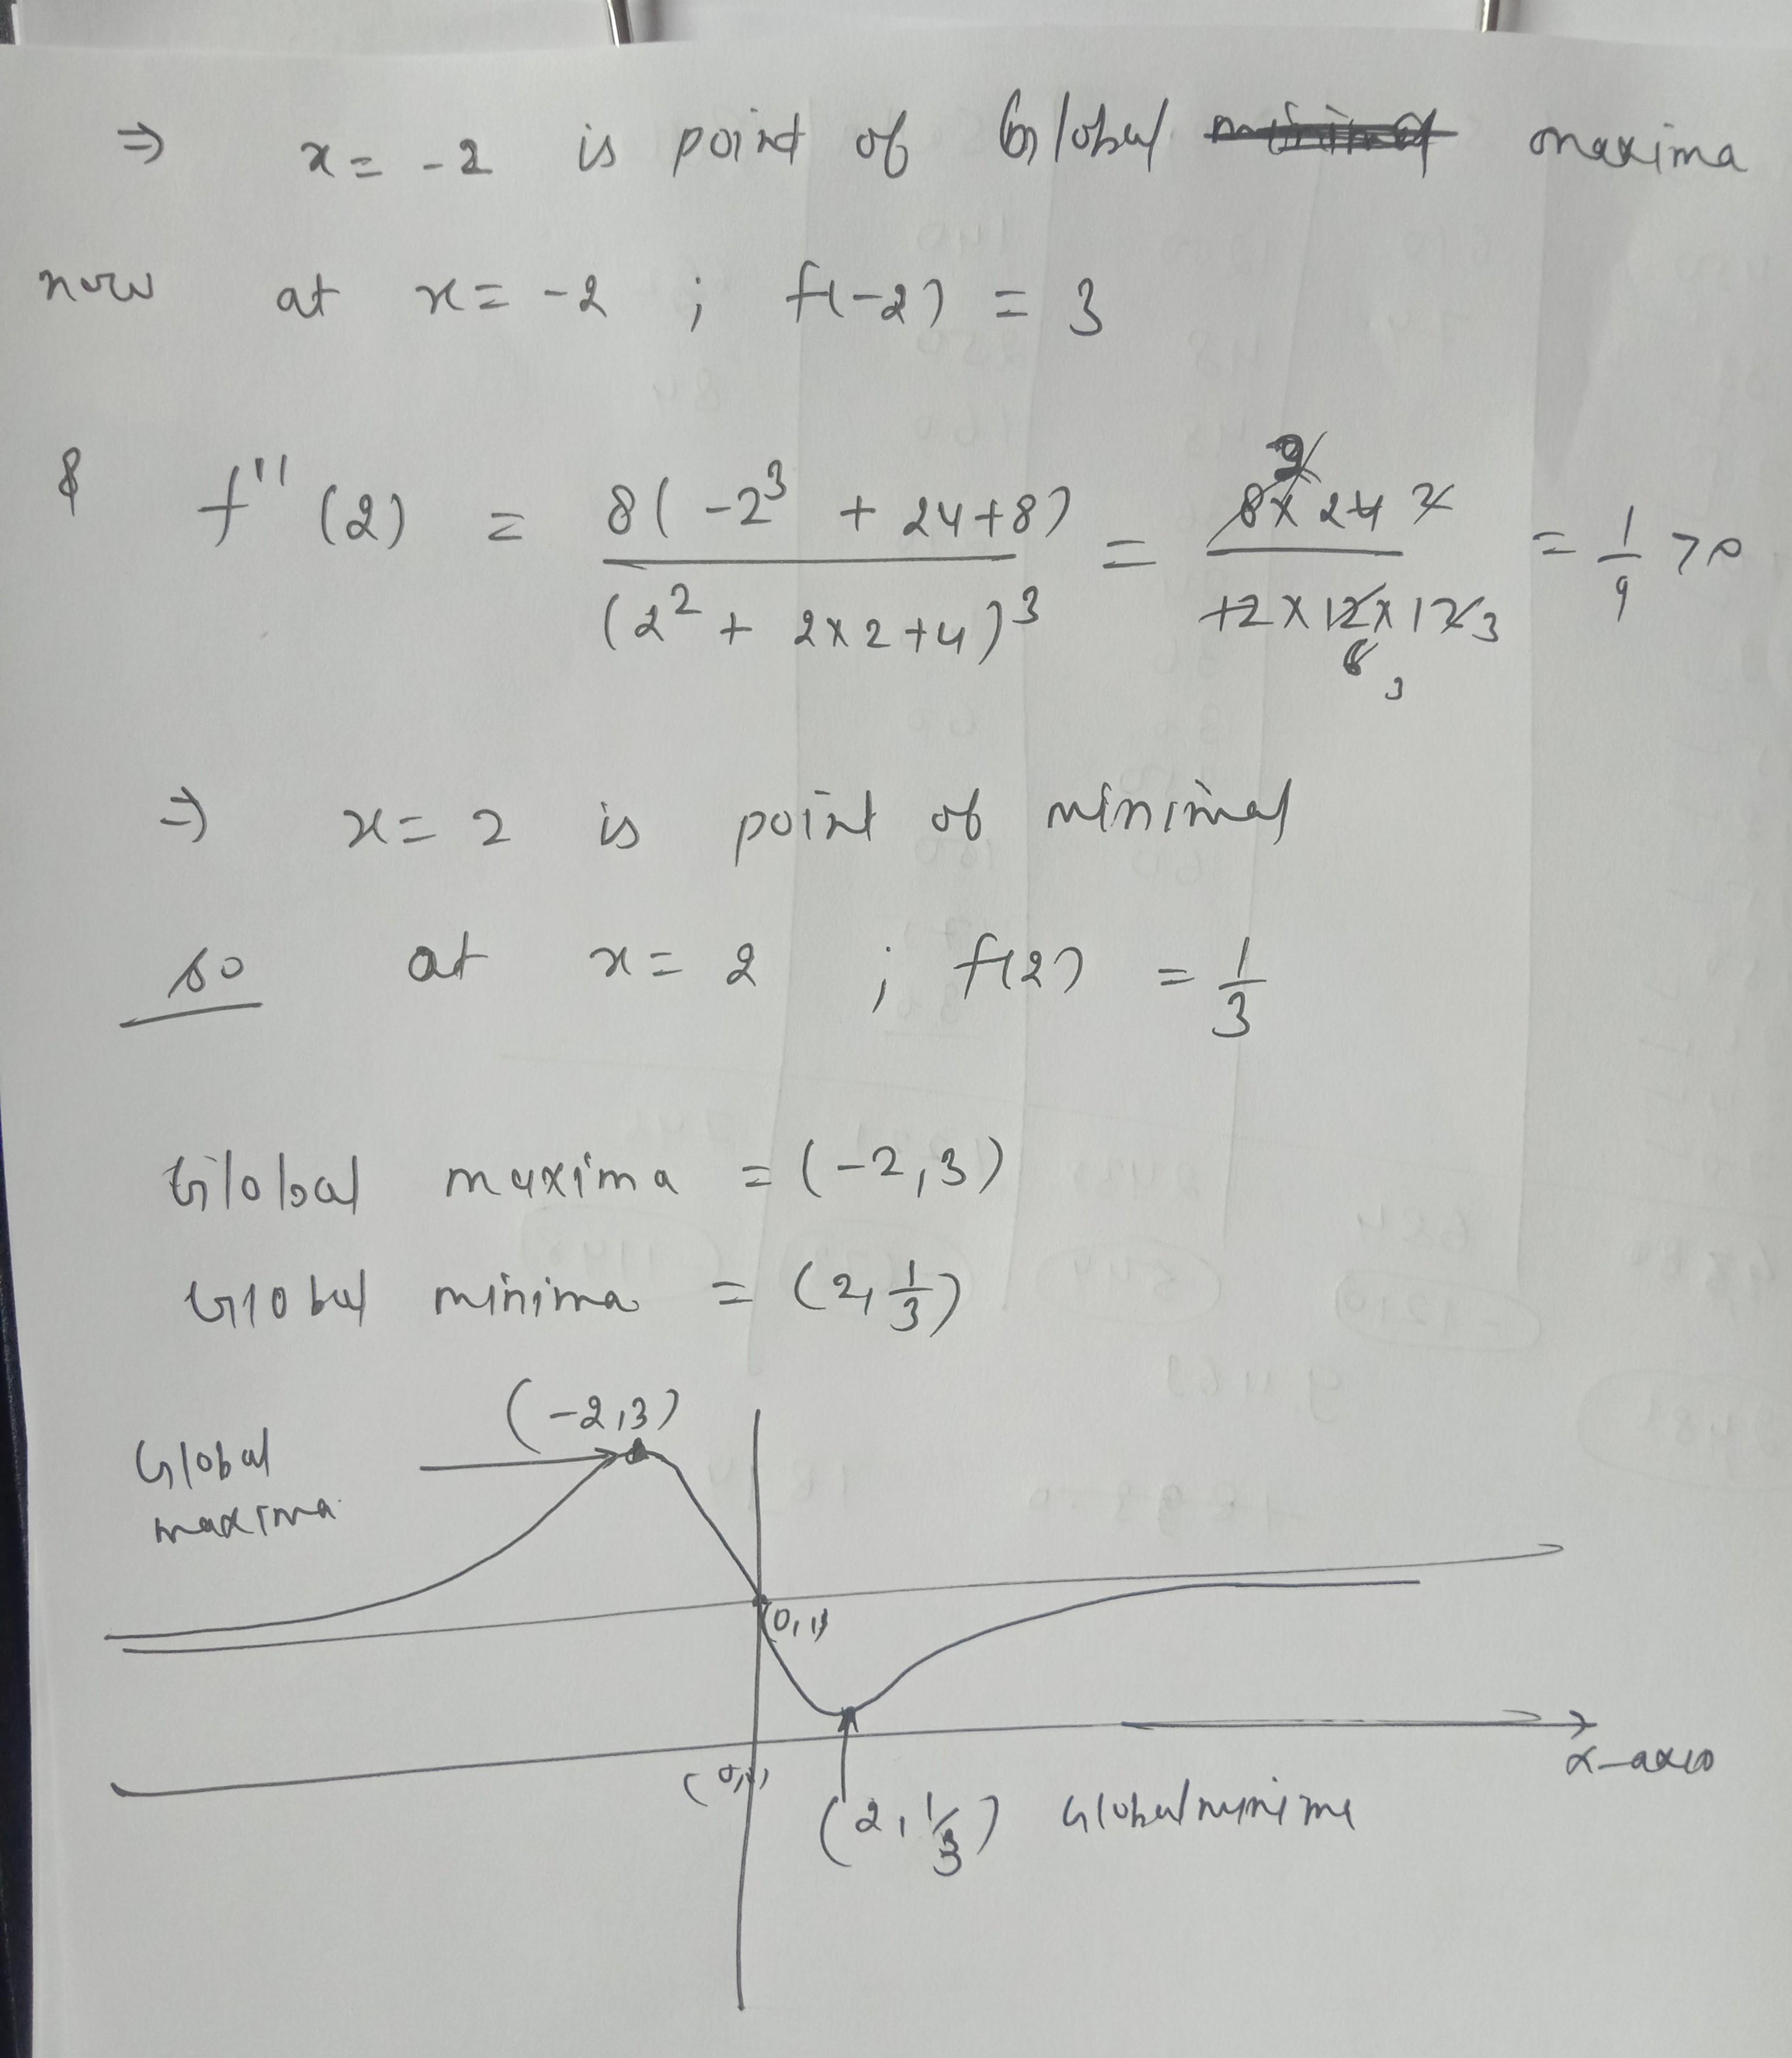 ⇒ x = -2 is point of Global maxima
now at x = -2 ; f(-2) = 3
& f''(2) = 8(-2³ + 24+8) / (2² + 2×2+4)³ = 8×24 / 12×12×12 = 1/9 >0
⇒ x = 2 is point of minimal
so at x = 2 ; f(2) = 1/3
Global maxima = (-2,3)
Global minima = (2, 1/3)
(-2,3)
Global
maxima
(0,1)
x-axis
(0,0)
(2, 1/3) Global minima